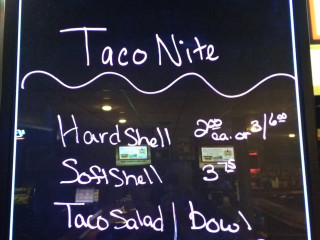 Taco Nite
Hard Shell 2.00 ea. or 3/6.00
Soft Shell 3.75
Taco Salad / bowl